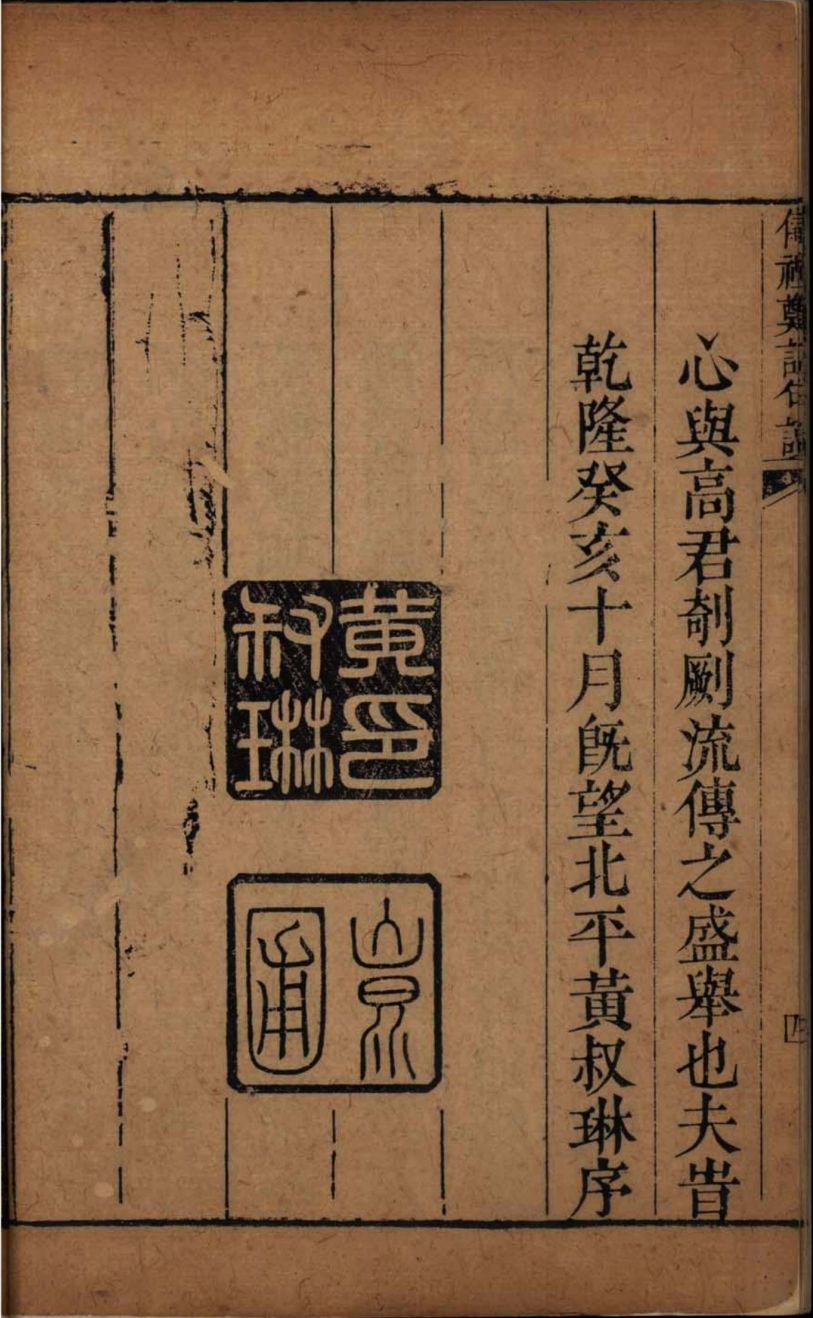 儀禮鄭註句讀
四
心與高君剞劂流傳之盛舉也夫旹
乾隆癸亥十月既望北平黃叔琳序
黃印
叔琳
崑
圃